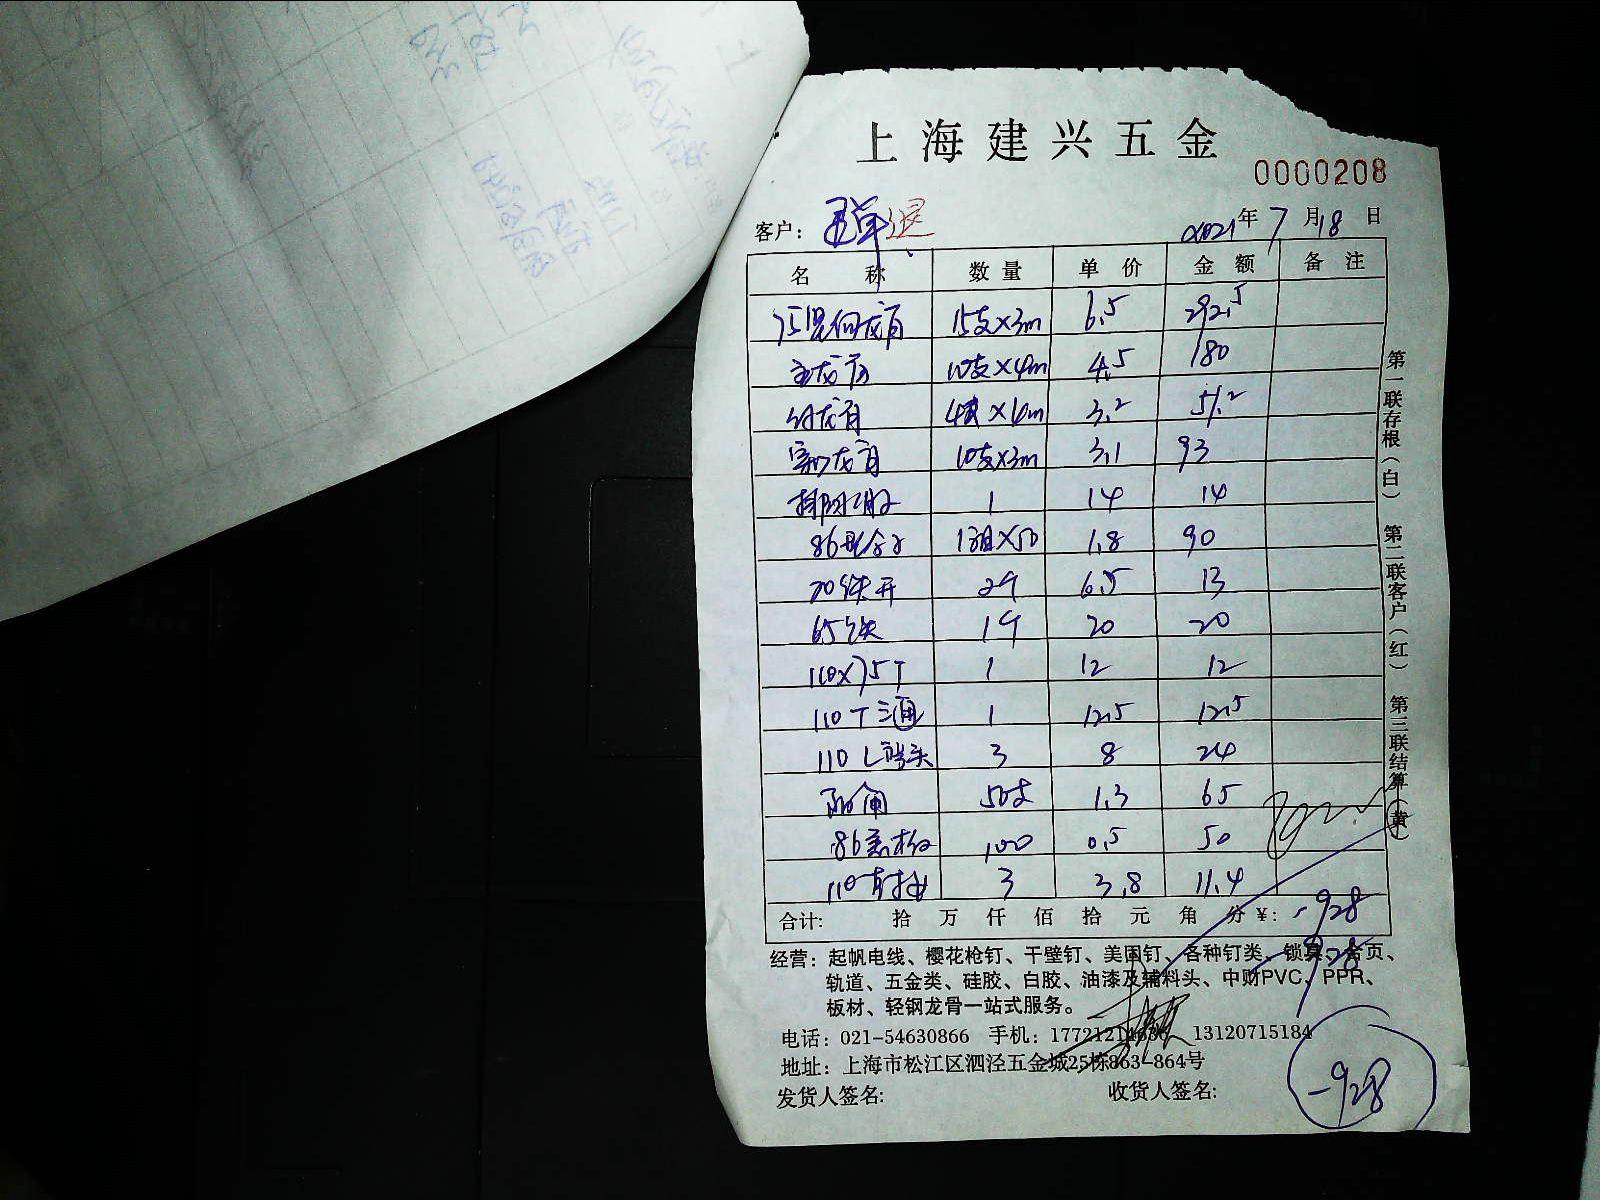 上海建兴五金
0000208
客户: 退 2021年7月18日
名 称 数量 单价 金额 备注
75 龙骨 15支×3m 6.5 292.5
主龙骨 10支×4m 4.5 180
付龙骨 4支× 3.2 51.2
龙骨 10支×3m 3.1 93
1 14 14
86 盒子 1箱×50 1.8 90
20 铁开 2个 6.5 13
65铁 1个 20 20
110×75T 1 12 12
110T三通 1 12.5 12.5
110L弯头 3 8 24
50支 1.3 65
86盖板 100 0.5 50
110直接 3 3.8 11.4
合计: 拾 万 仟 佰 拾 元 角 分¥: -928
-928
经营: 起帆电线、樱花枪钉、干壁钉、美固钉、各种钉类、锁具、合页、
轨道、五金类、硅胶、白胶、油漆及辅料头、中财PVC、PPR、
板材、轻钢龙骨一站式服务。
电话: 021-54630866 手机: 13120715184
地址: 上海市松江区泗泾五金城25栋863-864号
发货人签名: 收货人签名:
-928
第一联存根(白) 第二联客户(红) 第三联结算(黄)